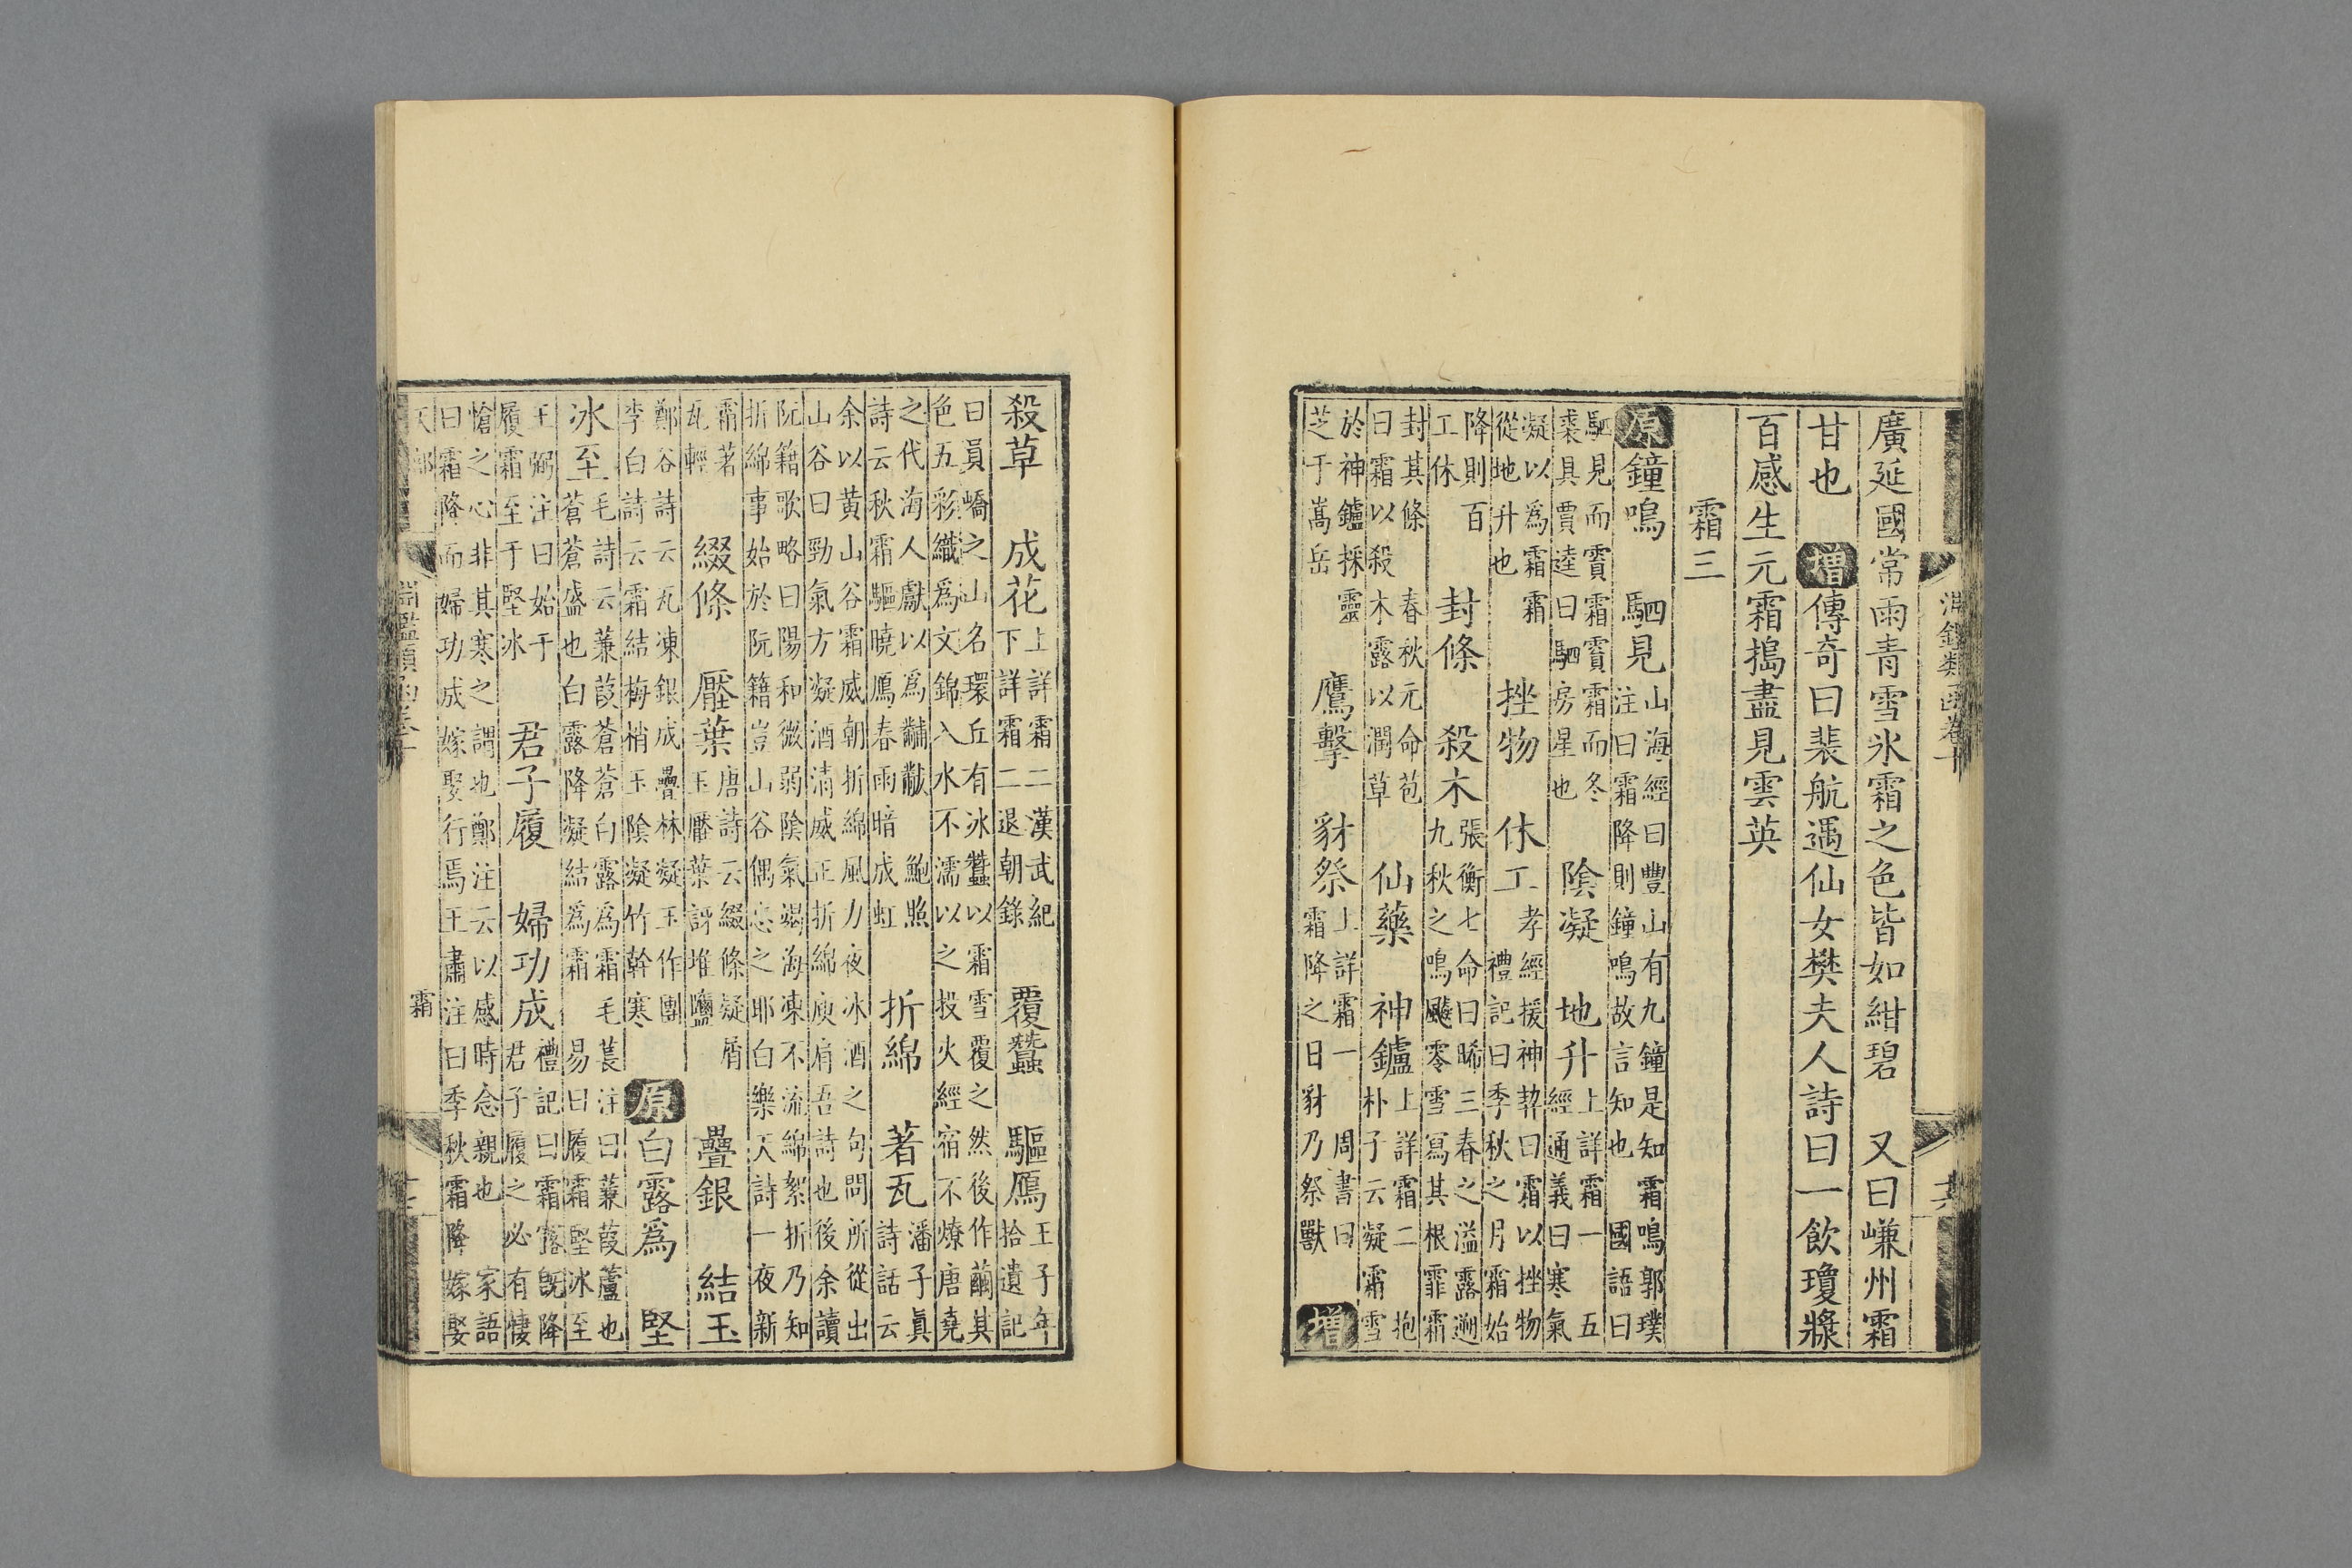 淵鑑類函卷十
廣延國常雨青雪氷霜之色皆如紺碧 又曰嵰州霜
甘也 增傳奇曰裴航遇仙女樊夫人詩曰一飲瓊漿
百感生元霜搗盡見雲英
霜三
原鐘鳴 駟見山海經曰豐山有九鐘是知霜鳴郭璞
注曰霜降則鐘鳴故言知也 國語曰
駟見而霣霜霣霜而冬
裘具賈逵曰駟房星也 陰凝 地升上詳霜一 五
經通義曰寒氣
凝以爲霜霜
從地升也 挫物 休工孝經援神契曰霜以挫物
禮記曰季秋之月霜始
降則百
工休 封條 殺木張衡七命曰晞三春之溢露遡
九秋之鳴飇零雪寫其根霏霜
封其條 春秋元命苞
曰霜以殺木露以潤草 仙藥 神鑪上詳霜二 抱
朴子云凝霜雪
於神鑪採靈
芝于嵩岳 鷹擊 豺祭上詳霜一 周書曰
霜降之日豺乃祭獸 增
殺草 成花上詳霜二漢武紀
下詳霜二退朝錄 覆蠶 驅鴈王子年
拾遺記
曰員嶠之山名環丘有冰蠶以霜雪覆之然後作繭其
色五彩織爲文錦入水不濡以之投火經宿不燎唐堯
之代海人獻以爲黼黻 鮑照
詩云秋霜驅曉鴈春雨暗成虹 折綿 著瓦潘子眞
詩話云
余以黄山谷霜威朝折綿風力夜冰酒之句問所從出
山谷曰勁氣方凝酒清威正折綿庾肩吾詩也後余讀
阮籍歌略曰陽和微弱陰氣竭海凍不流綿絮折乃知
折綿事始於阮籍豈山谷偶忘之耶白樂天詩一夜新
霜著
瓦輕 綴條 壓葉唐詩云綴條凝屑
玉壓葉訝堆鹽 疊銀 結玉
鄭谷詩云瓦凍銀成疊林凝玉作團
李白詩云霜結梅梢玉陰凝竹幹寒 原白露爲 堅
冰至毛詩云蒹葭蒼蒼白露爲霜毛萇注曰蒹葭蘆也
蒼蒼盛也白露降凝結爲霜 易曰履霜堅冰至
王弼注曰始于
履霜至于堅冰 君子履 婦功成禮記曰霜露旣降
君子履之必有悽
愴之心非其寒之謂也鄭注云以感時念親也 家語
曰霜降而婦功成嫁娶行焉王肅注曰季秋霜降嫁娶
霜